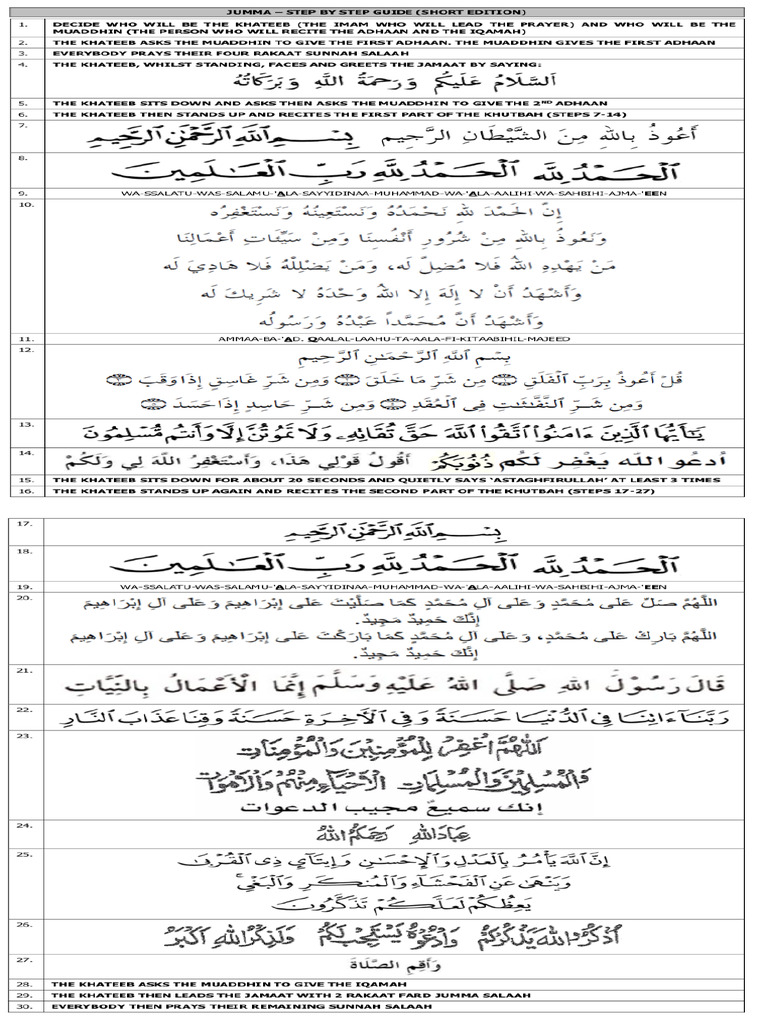 JUMMA – STEP BY STEP GUIDE (SHORT EDITION)
1. DECIDE WHO WILL BE THE KHATEEB (THE IMAM WHO WILL LEAD THE PRAYER) AND WHO WILL BE THE
MUADDHIN (THE PERSON WHO WILL RECITE THE ADHAAN AND THE IQAMAH)
2. THE KHATEEB ASKS THE MUADDHIN TO GIVE THE FIRST ADHAAN. THE MUADDHIN GIVES THE FIRST ADHAAN
3. EVERYBODY PRAYS THEIR FOUR RAKAAT SUNNAH SALAAH
4. THE KHATEEB, WHILST STANDING, FACES AND GREETS THE JAMAAT BY SAYING:
اَلسَّلَامُ عَلَيْكُمْ وَرَحمَةُ اللَّهِ وَبَرَكَاتُهُ
5. THE KHATEEB SITS DOWN AND ASKS THEN ASKS THE MUADDHIN TO GIVE THE 2ND ADHAAN
6. THE KHATEEB THEN STANDS UP AND RECITES THE FIRST PART OF THE KHUTBAH (STEPS 7-14)
7. أَعُوذُ بِاللهِ مِنَ الشَّيْطَانِ الرَّجِيمِ بِسْمِ ٱللَّهِ ٱلرَّحْمَٰنِ ٱلرَّحِيمِ
8. ٱلْحَمْدُ لِلَّهِ ٱلْحَمْدُ لِلَّهِ رَبِّ ٱلْعَٰلَمِينَ
9. WA-SSALATU-WAS-SALAMU-'ALA-SAYYIDINAA-MUHAMMAD-WA-'ALA-AALIHI-WA-SAHBIHI-AJMA-'EEN
10. إِنَّ الحَمْدَ للهِ نَحْمَدُهُ وَنَسْتَعِينُهُ وَنَسْتَغْفِرُه
وَنَعُوذُ بِاللهِ مِنْ شُرُورِ أَنْفُسِنَا وَمِنْ سَيِّئَاتِ أَعْمَالِنَا
مَنْ يَهْدِهِ اللهُ فَلا مُضِلّ لَه، وَمَنْ يَضْلِلْهُ فَلا هَادِيَ لَه
وَأَشْهَدُ أَنْ لا إِلَهَ إِلا اللهُ وَحْدَهُ لا شَرِيكَ لَه
وَأَشْهَدُ أَنَّ مُحَمَّداً عَبْدُهُ وَرَسُولُه
11. AMMAA-BA-'AD. QAALAL-LAAHU-TA-AALA-FI-KITAABIHIL-MAJEED
12. بِسْمِ ٱللَّهِ ٱلرَّحْمَٰنِ ٱلرَّحِيمِ
قُلْ أَعُوذُ بِرَبِّ ٱلْفَلَقِ مِن شَرِّ مَا خَلَقَ وَمِن شَرِّ غَاسِقٍ إِذَا وَقَبَ
وَمِن شَرِّ ٱلنَّفَّٰثَٰتِ فِى ٱلْعُقَدِ وَمِن شَرِّ حَاسِدٍ إِذَا حَسَدَ
13. يَٰٓأَيُّهَا ٱلَّذِينَ ءَامَنُوا۟ ٱتَّقُوا۟ ٱللَّهَ حَقَّ تُقَاتِهِۦ وَلَا تَمُوتُنَّ إِلَّا وَأَنتُم مُّسْلِمُونَ
14. أدعُو اللّٰه يَغْفِر لَكُم ذُنُوبَكُمْ أَقُولُ قَوْلِي هَذَا، وَأَسْتَغْفِرُ اللَّهَ لِي وَلَكُمْ
15. THE KHATEEB SITS DOWN FOR ABOUT 20 SECONDS AND QUIETLY SAYS 'ASTAGHFIRULLAH' AT LEAST 3 TIMES
16. THE KHATEEB STANDS UP AGAIN AND RECITES THE SECOND PART OF THE KHUTBAH (STEPS 17-27)
17. بِسْمِ ٱللَّهِ ٱلرَّحْمَٰنِ ٱلرَّحِيمِ
18. ٱلْحَمْدُ لِلَّهِ ٱلْحَمْدُ لِلَّهِ رَبِّ ٱلْعَٰلَمِينَ
19. WA-SSALATU-WAS-SALAMU-'ALA-SAYYIDINAA-MUHAMMAD-WA-'ALA-AALIHI-WA-SAHBIHI-AJMA-'EEN
20. اللَّهُمَّ صَلِّ عَلَى مُحَمَّدٍ وَعَلَى آلِ مُحَمَّدٍ كَمَا صَلَّيْتَ عَلَى إِبْرَاهِيمَ وَعَلَى آلِ إِبْرَاهِيمَ
إِنَّكَ حَمِيدٌ مَجِيدٌ.
اللَّهُمَّ بَارِكْ عَلَى مُحَمَّدٍ، وَعَلَى آلِ مُحَمَّدٍ كَمَا بَارَكْتَ عَلَى إِبْرَاهِيمَ وَعَلَى آلِ إِبْرَاهِيمَ
إِنَّكَ حَمِيدٌ مَجِيدٌ.
21. قَالَ رَسُوْلُ اللهِ صَلَّى اللهُ عَلَيْهِ وَسَلَّمَ إِنَّمَا الْأَعْمَالُ بِالنِّيَّاتِ
22. رَبَّنَآ ءَاتِنَا فِى ٱلدُّنْيَا حَسَنَةً وَفِى ٱلْأَخِرَةِ حَسَنَةً وَقِنَا عَذَابَ ٱلنَّارِ
23. اَللّٰهُمَّ اغْفِرْ لِلْمُؤْمِنِيْنَ وَالْمُؤْمِنَاتِ
وَالْمُسْلِمِيْنَ وَالْمُسْلِمَاتِ اَلْاَحْيَاءِ مِنْهُمْ وَالْاَمْوَاتِ
إنك سميعٌ مجيب الدعوات
24. عِبَادَاللهِ رَحِمَكُمُ اللهُ
25. إِنَّ ٱللَّهَ يَأْمُرُ بِٱلْعَدْلِ وَٱلْإِحْسَٰنِ وَإِيتَآئِ ذِى ٱلْقُرْبَىٰ
وَيَنْهَىٰ عَنِ ٱلْفَحْشَآءِ وَٱلْمُنكَرِ وَٱلْبَغْىِ ۚ
يَعِظُكُمْ لَعَلَّكُمْ تَذَكَّرُونَ
26. اُذْكُرُوا اللهَ يَذْكُرْكُمْ وَادْعُوْهُ يَسْتَجِبْ لَكُمْ وَلَذِكْرُ اللهِ اَكْبَرُ
27. وَأَقِمِ الصَّلَاةَ
28. THE KHATEEB ASKS THE MUADDHIN TO GIVE THE IQAMAH
29. THE KHATEEB THEN LEADS THE JAMAAT WITH 2 RAKAAT FARD JUMMA SALAAH
30. EVERYBODY THEN PRAYS THEIR REMAINING SUNNAH SALAAH